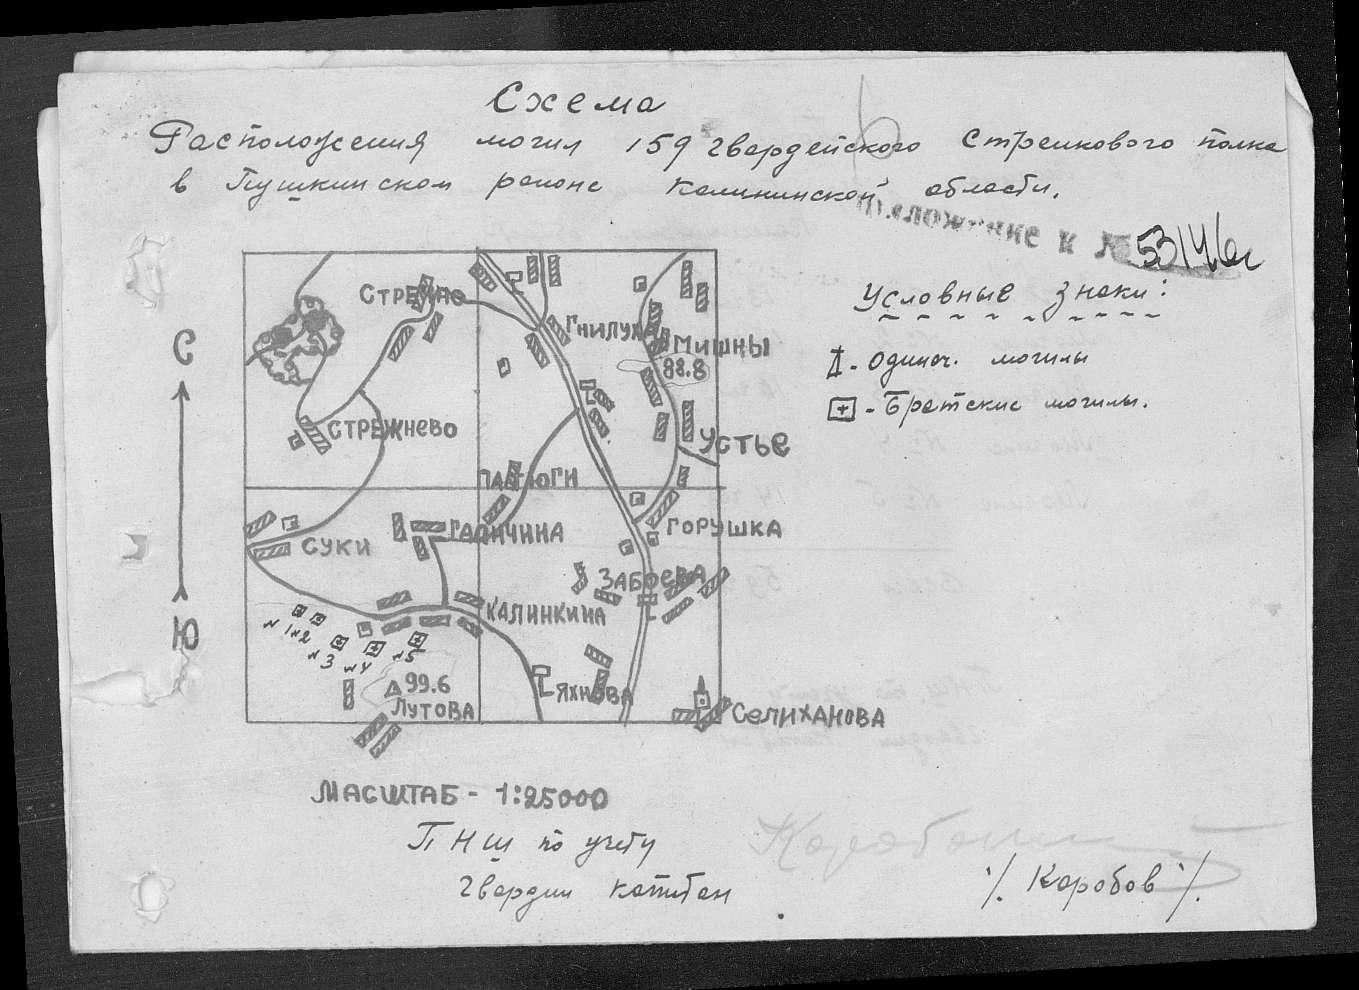 Схема
Расположения могил 159 гвардейского Стрелкового полка
в Пушкинском районе Калининской области.
Приложение к № 53146с
Условные знаки:
- одиноч. могилы
- Братские могилы.
С
Ю
Стречно
Гнилуха
Мишны
88.8
Стрежнево
Устье
Пастюги
Суки
Галичина
Горушка
Забоева
Калинкина
№1 №2
№3 №4 №5
99.6
Лутова
Яхнова
Селиханова
Масштаб - 1:25000
ПНШ по учету
гвардии капитан /Коробов/.